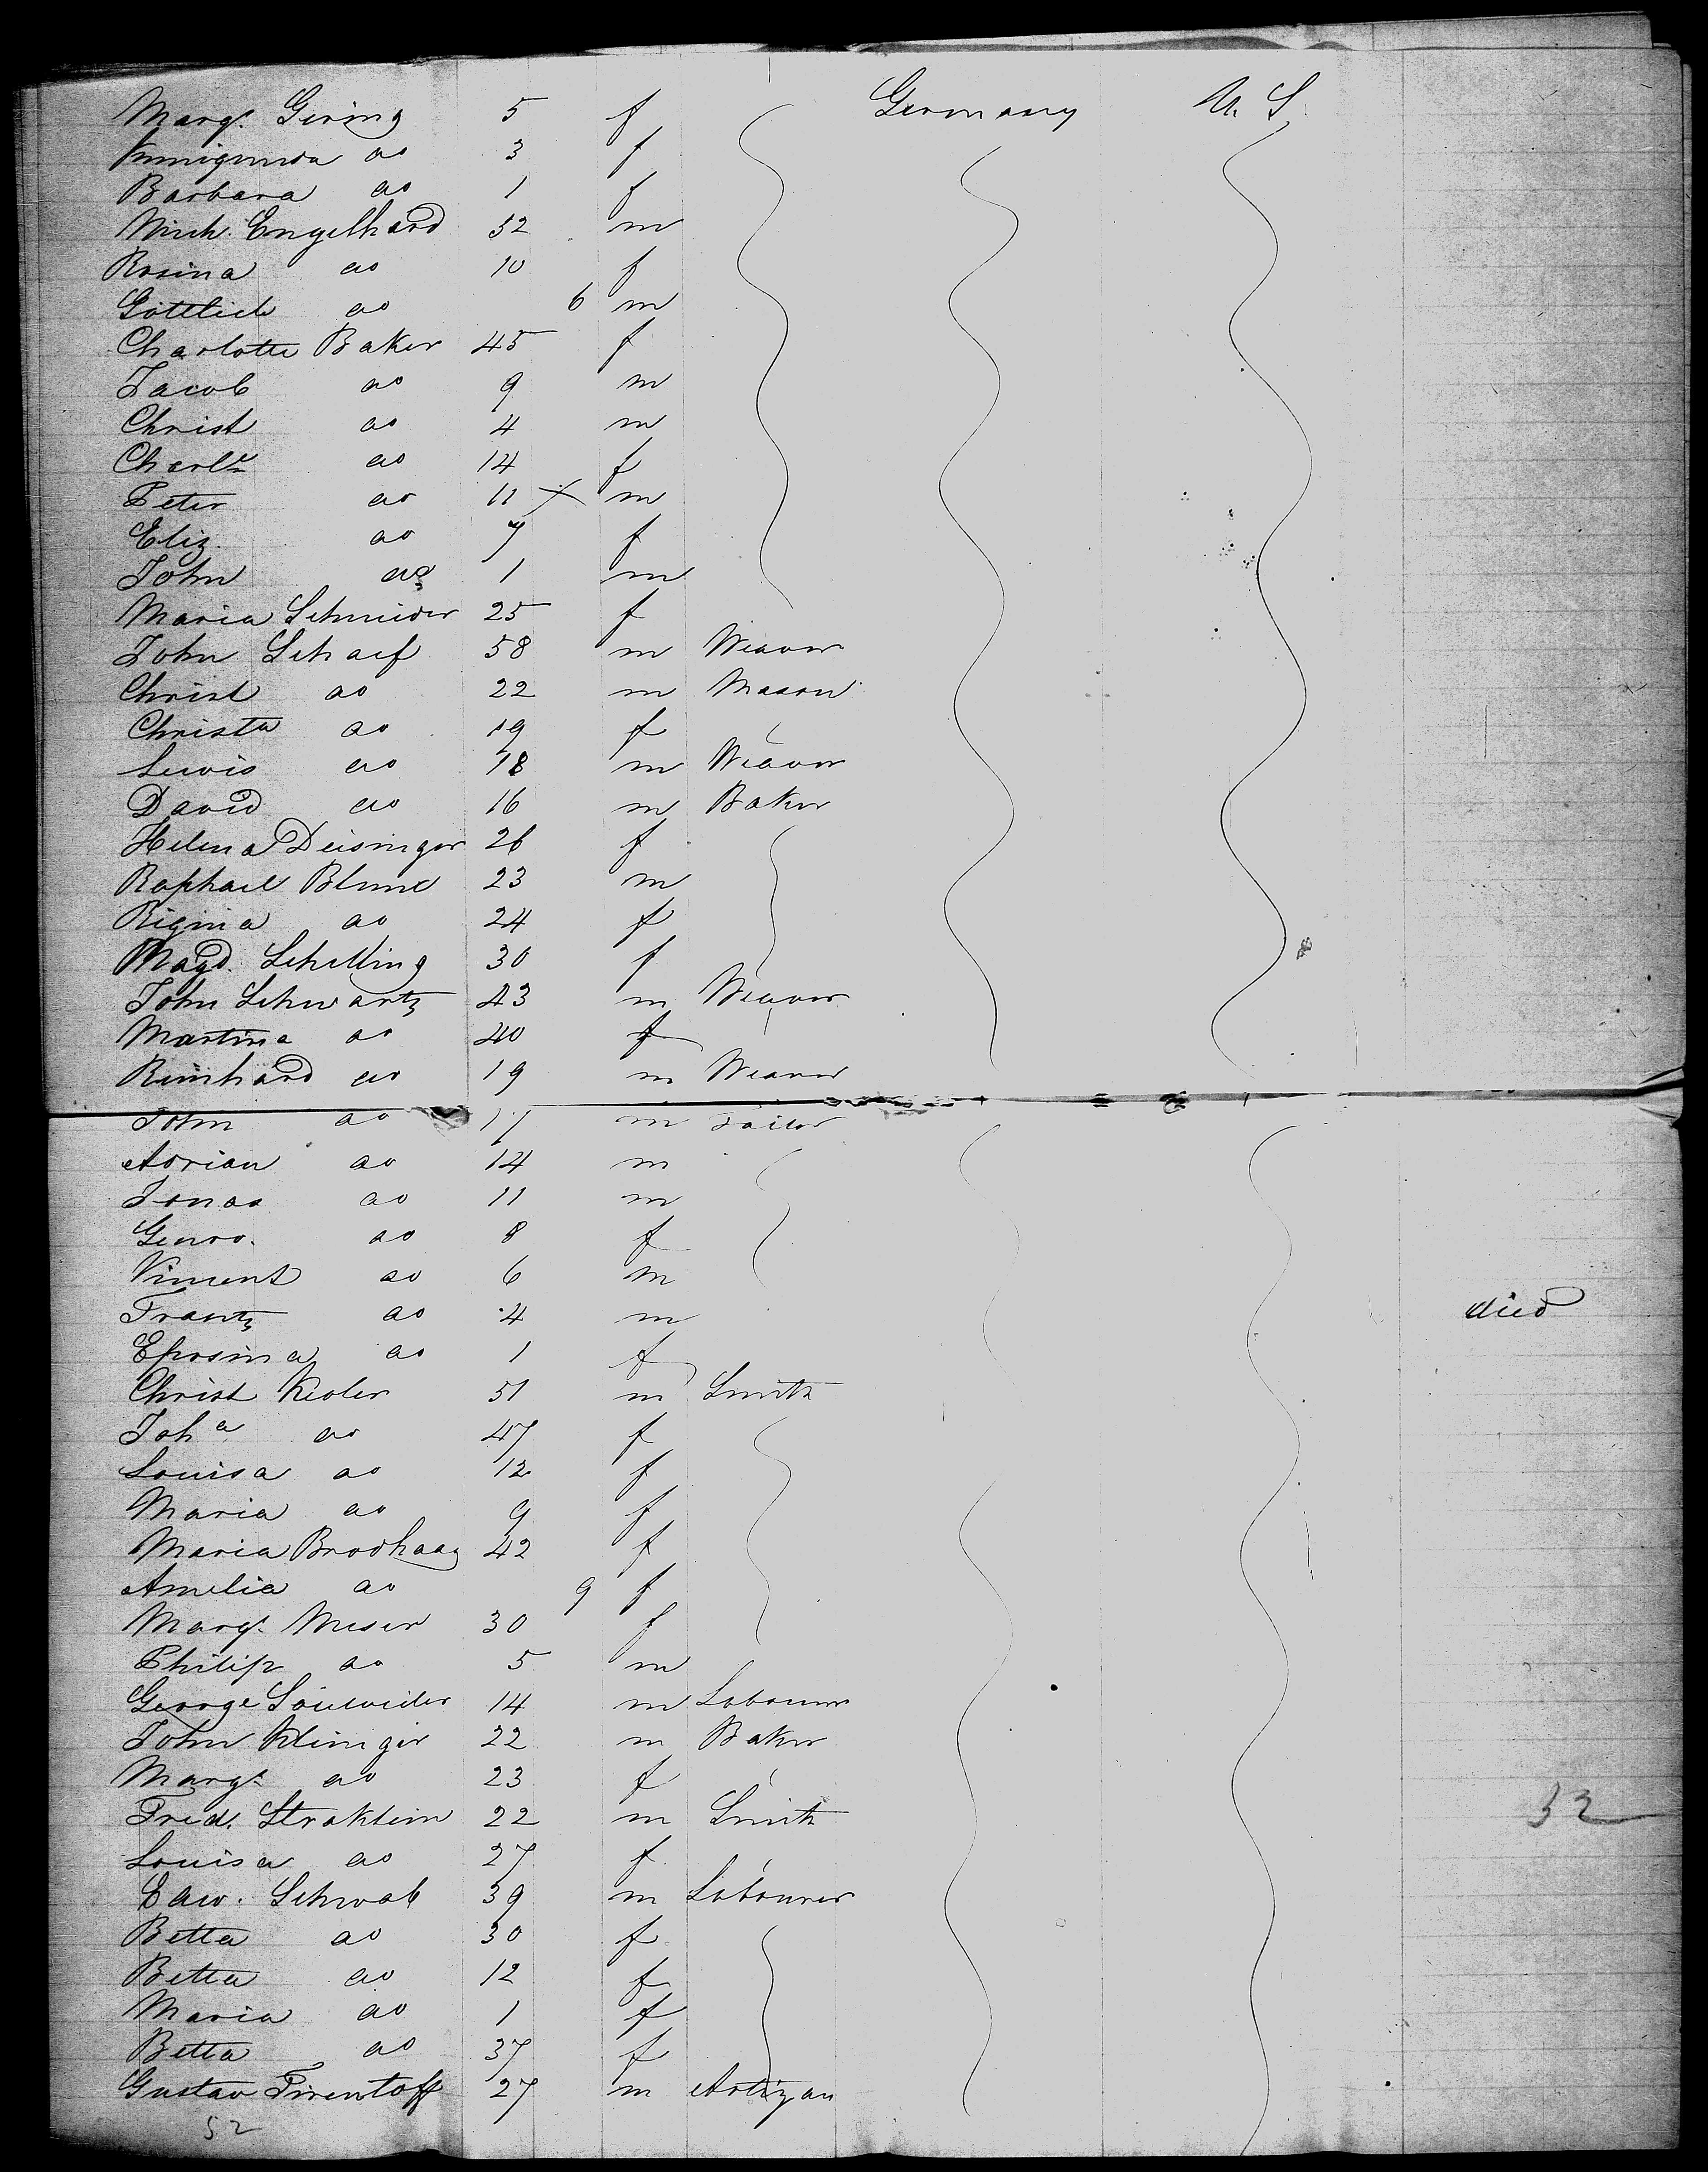 Margt. Gering 5 f Germany U. S.
Kunnigunda do 3 f
Barbara do 1 f
Mich. Engelhard 32 m
Rosina do 10 f
Gottlieb do 6 m
Charlotte Baker 45 f
Jacob do 9 m
Christ do 4 m
Charlte do 14 f
Peter do 11 x m
Eliz. do 7 f
John do 1 m
Maria Schneider 25 f
John Schaef 58 m Weaver
Christ do 22 m Mason
Christa do 19 f
Lewis do 18 m Weaver
David do 16 m Baker
Helena Deisinger 26 f
Raphael Blume 23 m
Regina do 24 f
Magd. Schilling 30 f
John Schwartz 43 m Weaver
Martina do 40 f
Reinhard do 19 m Weaver
John do 17 m Tailor
Adrian do 14 m
Jonas do 11 m
Genro. do 8 f
Vincent do 6 m
Frantz do 4 m died
Eposina do 1 f
Christ Kesler 51 m Smith
Joha do 47 f
Louisa do 12 f
Maria do 9 f
Maria Brodhaag 42 f
Amelia do 9 f
Margt. Meser 30 f
Philip do 5 m
George 14 m Labourer
John Klinger 22 m Baker
Margt. do 23 f
Fred. Straktein 22 m Smith 32
Louisa do 27 f
Edw. Schwab 39 m Labourer
Betta do 30 f
Betta do 12 f
Maria do 1 f
Betta do 37 f
Gustav Firentoff 27 m Artizan
52